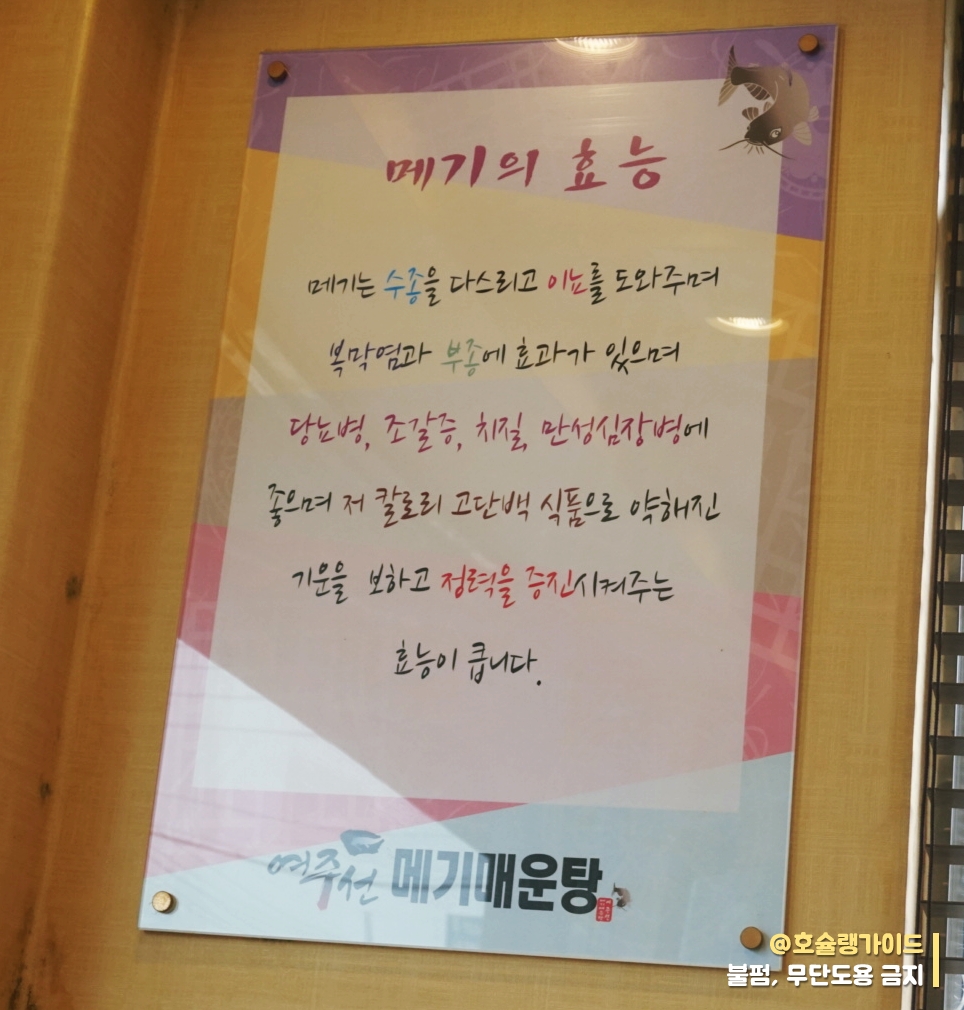 메기의 효능
메기는 수종을 다스리고 이뇨를 도와주며
복막염과 부종에 효과가 있으며
당뇨병, 조갈증, 치질, 만성심장병에
좋으며 저 칼로리 고단백 식품으로 약해진
기운을 보하고 정력을 증진시켜주는
효능이 큽니다.
여주선 메기매운탕
@호슐랭가이드
불펌, 무단도용 금지